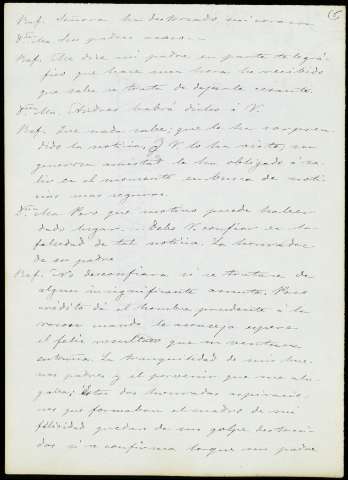 Raf. Señora ha destrozado mi corazon
D.ña Ma. Sus padres acaso...
Raf. Me dice mi padre en parte telegrá-
fico que hace una hora he recibido
que sabe se trata de dejarle cesante.
D.ña Ma. Andres habrá dicho á V.
Raf. Que nada sabe; que le ha sorpren-
dido la noticia, V. lo ha visto, su
generosa amistad le ha obligado á sa-
lir en el momento en busca de noti-
cias mas seguras.
D.ña Ma. Pero que motivos puede haber
dado lugar... Debe V. confiar en la
falsedad de tal noticia. La honradez
de su padre
Raf. No desconfiara si se tratara de
algun insignificante asunto. Poco
crédito dá el hombre prudente á la
cuando le aconseja espere
el feliz resultado que su ventura
entraña. La tranquilidad de mis bue-
nos padres y el porvenir que me ale-
gaba; Estas dos honradas aspiracio-
nes que formaban el cuadro de mi
felicidad quedan de un golpe destrui-
das si se confirma lo que mi padre